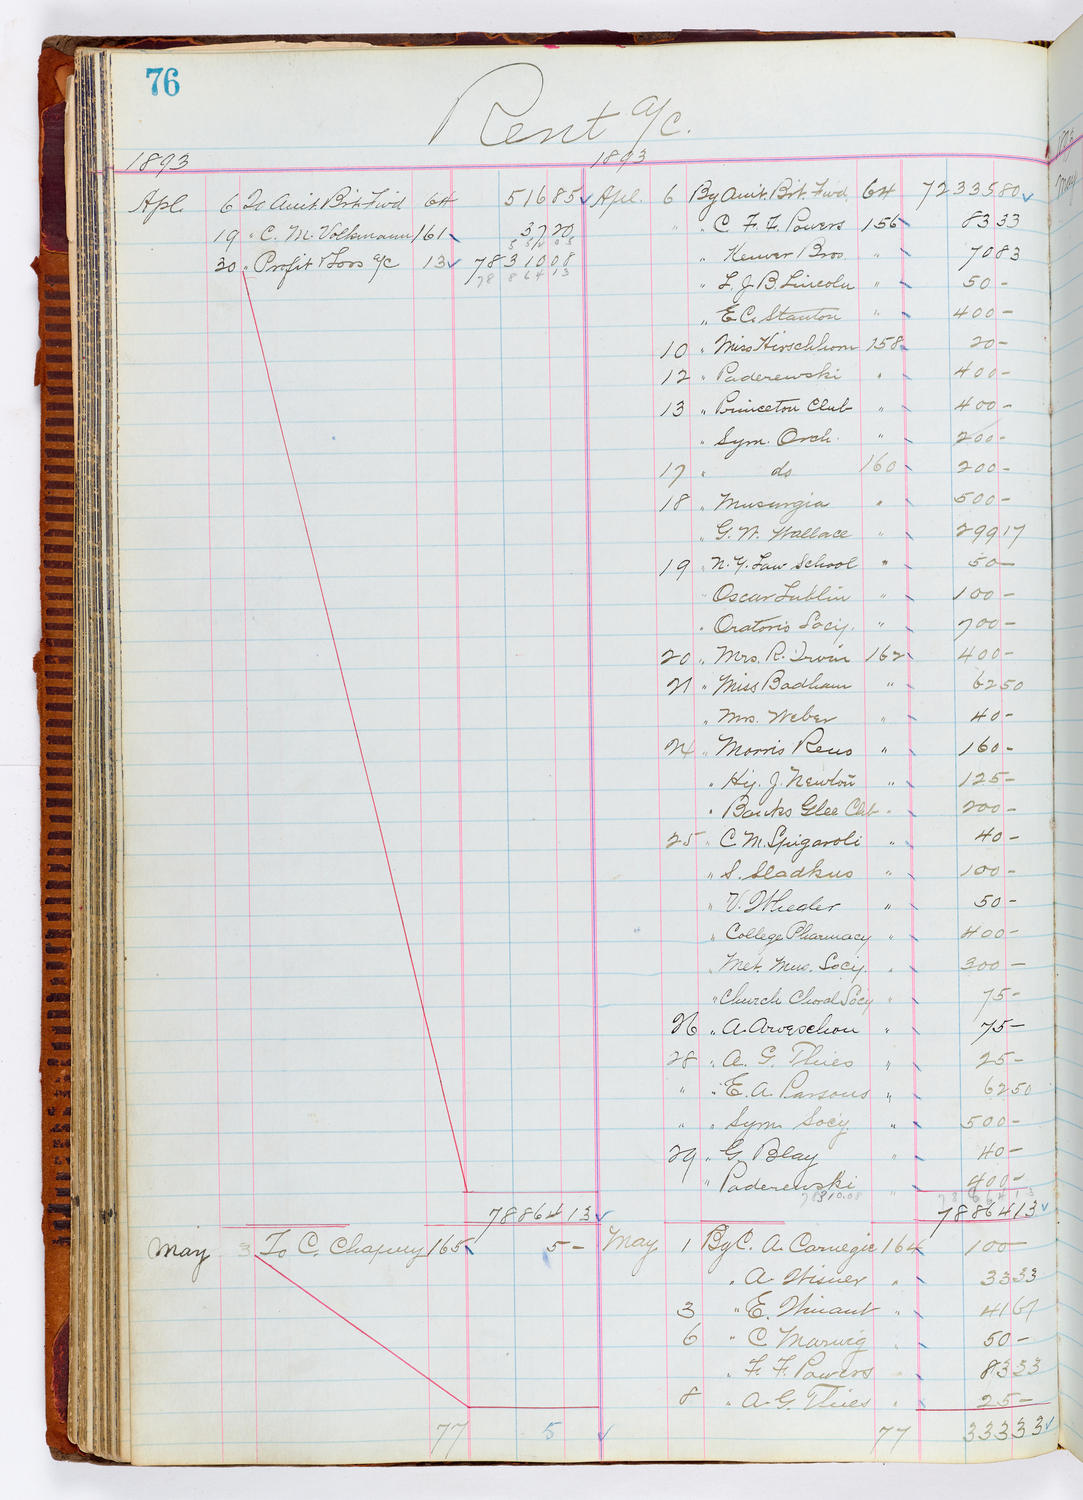 76
Rent a/c.
1893 1893
Apl. 6 To Amt. Brt. Fwd 64 516 85 Apl. 6 By Amt. Brt. Fwd. 64 72335 80
19 " C. M. Volkmann 161 37 20 " " C F. F. Powers 156 83 33
5 54 05
30 " Profit & Loss a/c 13 78310 08 " " 70 83
78 864 13
" L. J. B. Lincoln " 50 -
" E C. Stanton " 400 -
10 " Miss Hirschhorn 158 20 -
12 " Paderewski " 400 -
13 " Princeton Club " 400 -
" Sym. Orch. " 200 -
17 " do 160 200 -
18 " Musurgia " 500 -
" G. W. Wallace " 299 17
19 " N. Y. Law School " 50 -
" Oscar Lublin " 100 -
" Oratorio Socy. " 700 -
20 " Mrs. R. Irvin 162 400 -
21 " Miss Badham " 62 50
" Mrs. Weber " 40 -
24 " Morris Reno " 160 -
" Hy. J. Newton " 125 -
" Banks Glee Club " 200 -
25 " C. M. Spigaroli " 40 -
" S. Sladkus " 100 -
" V. Wheeler " 50 -
" College Pharmacy " 400 -
" Met. Mus. Socy. " 300 -
" Church Choral Socy " 75 -
26 " A. Arveschou " 75 -
28 " A. G. Thies " 25 -
" " E. A. Parsons " 62 50
" " Sym. Socy. " 500 -
29 " G. Blay " 40 -
" Paderewski " 400 -
78310.08 78 864 13
78864 13 78864 13
May 3 To C. Chapury 165 5 - May 1 By C. A. Carnegie 164 100 -
" A. Wisner " 33 33
3 " E. Winant " 41 67
6 " C Marwig " 50 -
" F. F. Powers " 83 33
8 " A. G. Thies " 25 -
77 5 77 333 33